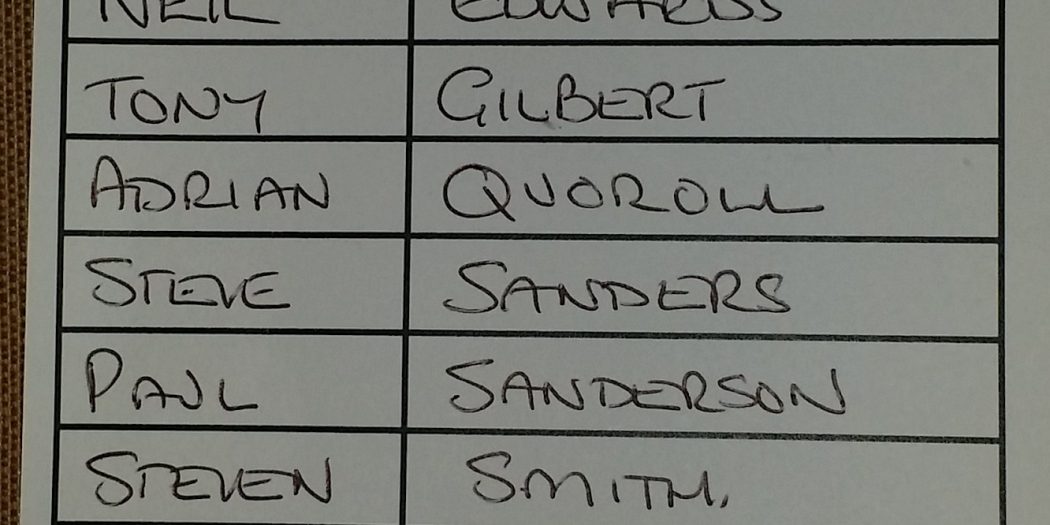 NEIL EDWARDS
TONY GILBERT
ADRIAN QUOROLL
STEVE SANDERS
PAUL SANDERSON
STEVEN SMITH.